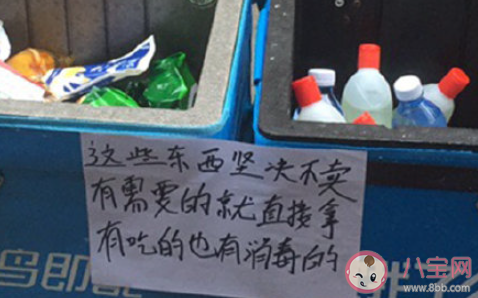 这些东西坚决不卖
有需要的就直接拿
有吃的也有消毒的
鸟即
八宝网
www.8bb.com